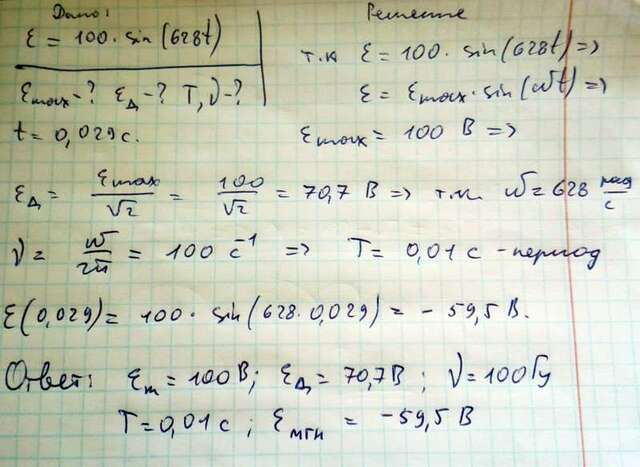 Дано:
Ɛ = 100 · sin(628t)
Ɛmax - ? Ɛд - ? T, ν - ?
t = 0,029 c.
Решение
т.к Ɛ = 100 · sin(628t) =>
Ɛ = Ɛmax · sin(ωt) =>
Ɛmax = 100 В =>
Ɛд = Ɛmax/√2 = 100/√2 = 70,7 В => т.к. ω = 628 рад/с
ν = ω/2π = 100 c⁻¹ => T = 0,01 c - период
Ɛ(0,029) = 100 · sin(628 · 0,029) = - 59,5 В.
Ответ: Ɛm = 100 В; Ɛд = 70,7 В; ν = 100 Гц
T = 0,01 c; Ɛмгн = -59,5 В